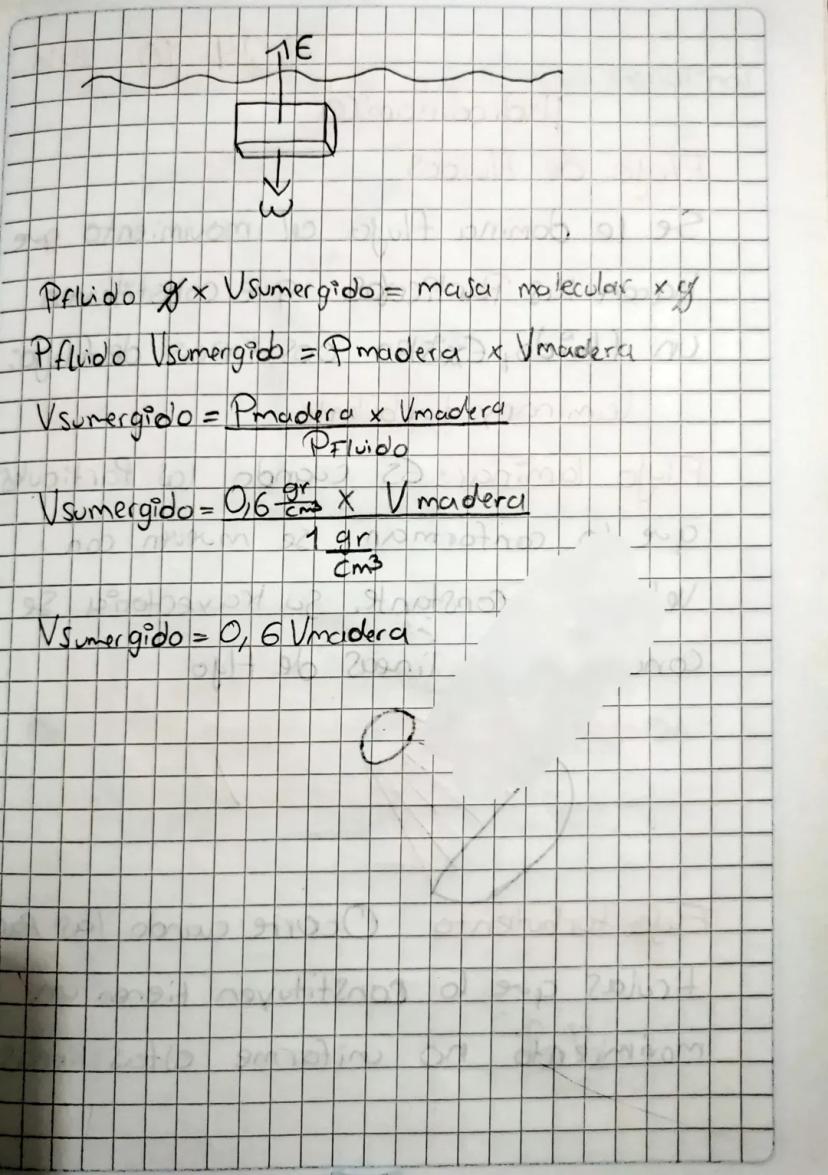 E
W
Pfluido g x Vsumergido = masa molecular x g
Pfluido Vsumergido = Pmadera x Vmadera
Vsumergido = Pmadera x Vmadera
PFluido
Vsumergido = 0,6 gr/cm³ x Vmadera
1 gr/cm³
Vsumergido = 0,6 Vmadera